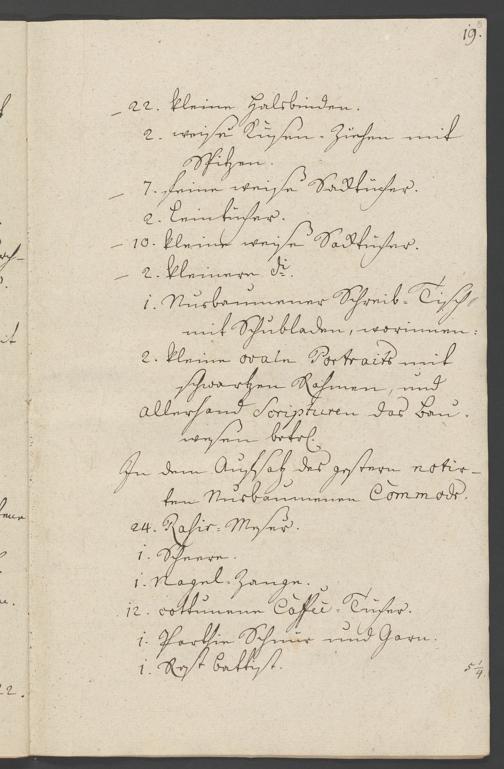 19.
22. kleine Halsbinden.
2. weise Küsen-Ziehen mit
Spitzen.
7. feine weise Sacktücher.
2. Leintücher.
10. kleine weise Sacktücher.
2. kleinere di.
1. Nusbaumener Schreib-Tisch
mit Schubladen, worinnen:
2. kleine ovale Portraits mit
schwartzen Rahmen, und
allerhand Scripturen das Bau-
wesen betrl.
In dem Auffsatz des gestern notir-
ten Nusbaumenen Commods.
24. Rasir-Meser.
1. Scheere.
1. Nagel-Zange.
12. cottunene Caffée-Tücher.
1. Parthie Schnur und Garn.
1. Rest battist. 5 1/4